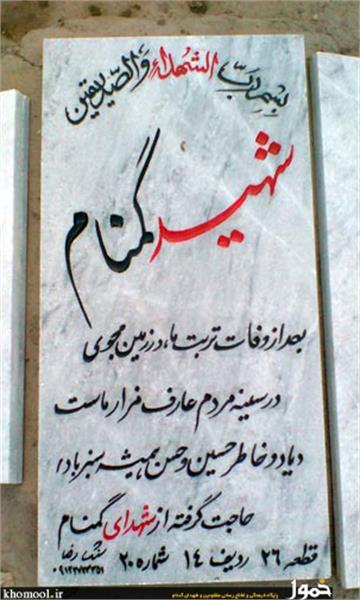 بسم ربّ الشهداء والصّدیقین
شهید گمنام
بعد از وفات تربت ما در زمین مجوی
در سینه مردم عارف مزار ماست
«یاد و خاطر حسین و حسن همیشه سبز باد»
حاجت گرفته از شهدای گمنام
قطعه ۲۶ ردیف ۱۴ شماره ۲۰
khomool.ir
خمول